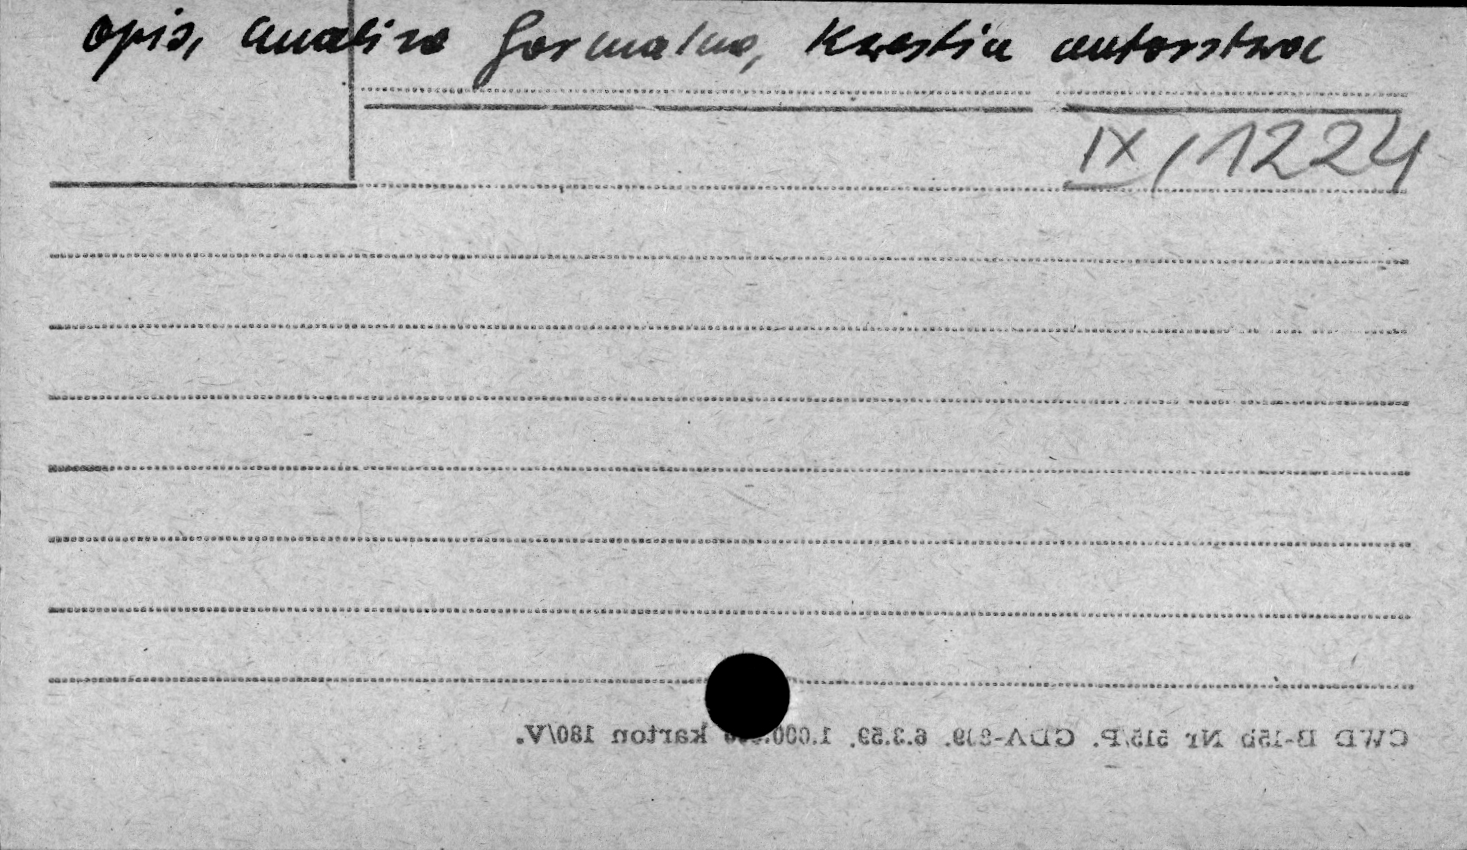 opis, analiza formalna, kwestia autorstwa
IX/1224
CWD B-15b Nr 515/P. GDA-809. 6.3.59. 1.000.000 karton 180/V.